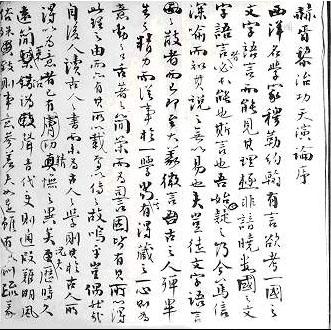 赫胥黎治功天演論序
西洋名學家穆勒約翰有言欲考一國之
文字語言而能見其理極非諳曉數國之文
字語言者不能也斯言也吾始疑之乃今篤信
深喻而知其說之無以易也夫豈徒文字語言
之散者而已即至大義微言古之人殫畢
生之精力而從事於一學當有得藏之一心則為
意動之口舌著之簡策而為詞固皆有其所以得
此理之由而亦有其所以載焉以傳之故嗚呼豈偶然哉
自後人讀古人書而未嘗為古人之學則其於古人所
得以為理者已有切膚精憮之異矣又況歷時久
遠簡牘沿訛聲音代變則通假難明風
俗殊尚則事意參差夫如是雖有故訓疏義